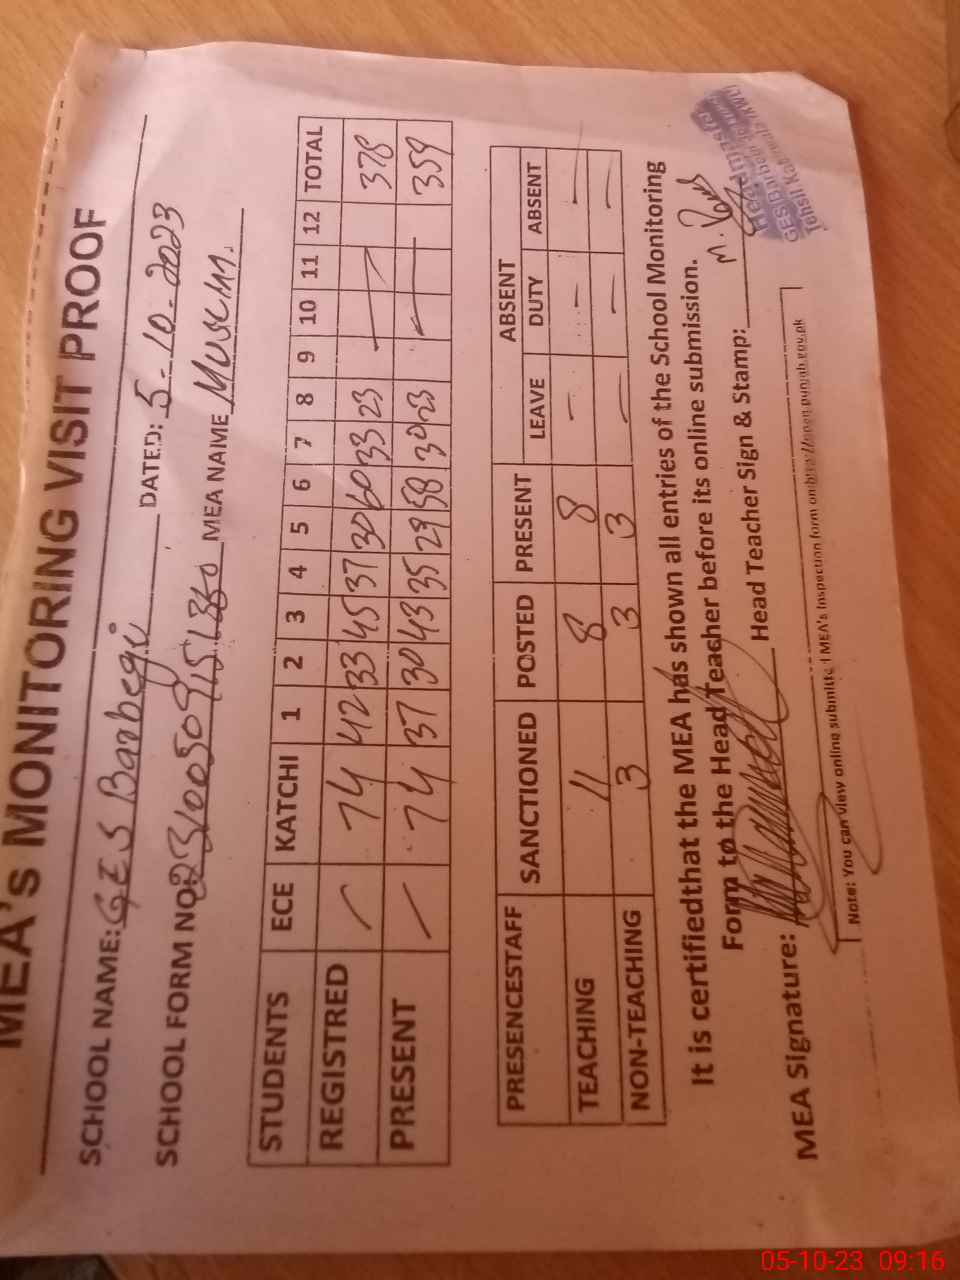 MEA's MONITORING VISIT PROOF
SCHOOL NAME: GES Banbegi DATED: 5-10-2023
SCHOOL FORM NO. MEA NAME
STUDENTS ECE KATCHI 1 2 3 4 5 6 7 8 9 10 11 12 TOTAL
REGISTRED — 74 42 33 45 37 30 60 33 23 — 378
PRESENT — 74 37 30 43 35 29 58 30 23 — 359
PRESENCESTAFF SANCTIONED POSTED PRESENT ABSENT
LEAVE DUTY ABSENT
TEACHING 11 8 8 - - -
NON-TEACHING 3 3 3 - - -
It is certifiedthat the MEA has shown all entries of the School Monitoring
Form to the Head Teacher before its online submission.
MEA Signature: Head Teacher Sign & Stamp:
Headmaster
Note: You can view online submitted MEA's Inspection form on
05-10-23 09:16